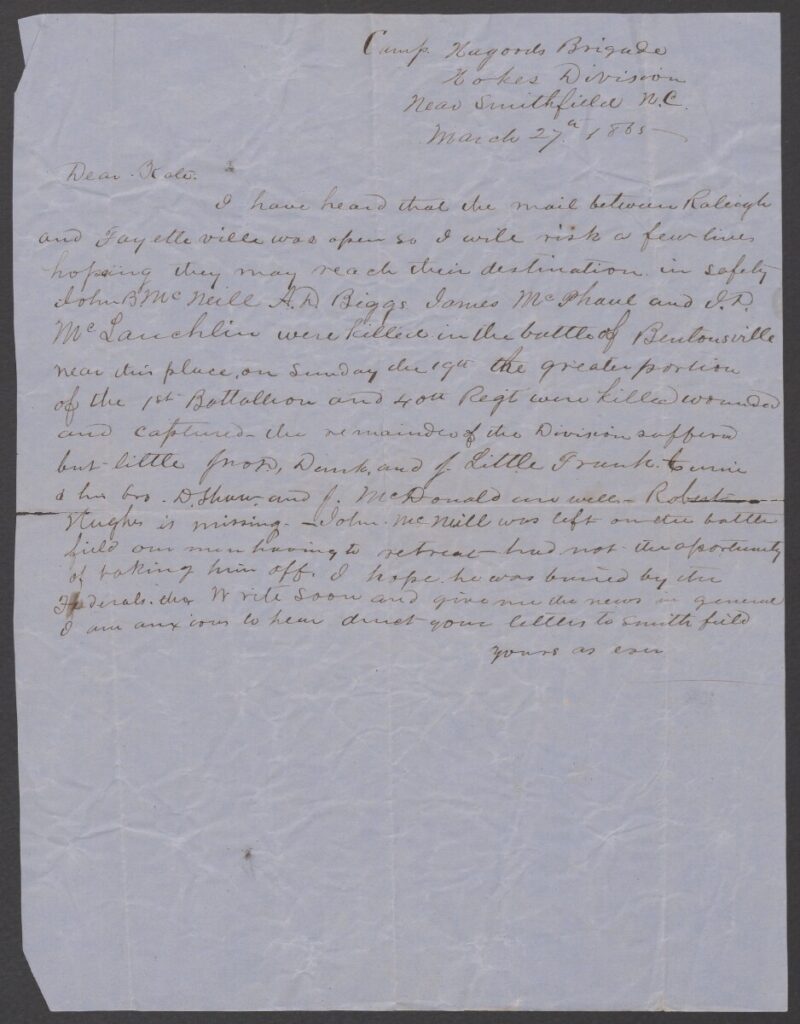 Camp Hagords Brigade
Hokes Division
Near Smithfield N.C.
March 27th 1865
Dear Kate.
I have heard that the mail between Raleigh
and Fayetteville was open so I will risk a few lines
hoping they may reach their destination in safety
John B McNeill A.D. Biggs James McPhaul and J.D.
McLauchlin were killed in the battle of Bentonsville
near this place, on Sunday the 19th the greater portion
of the 1st Battallion and 40th Regt were killed wounded
and captured - the remainder of the Division suffered
but little Dunk, and J. Little Frank
& his bro. D. Shaw and J. McDonald are well - Robert
Hughes is missing. - John McNeill was left on the battle
field our men having to retreat had not the oportunity
of taking him off. I hope he was buried by the
Federals. Write soon and give me the news in general
I am anxious to hear direct your letters to Smithfield
yours as ever